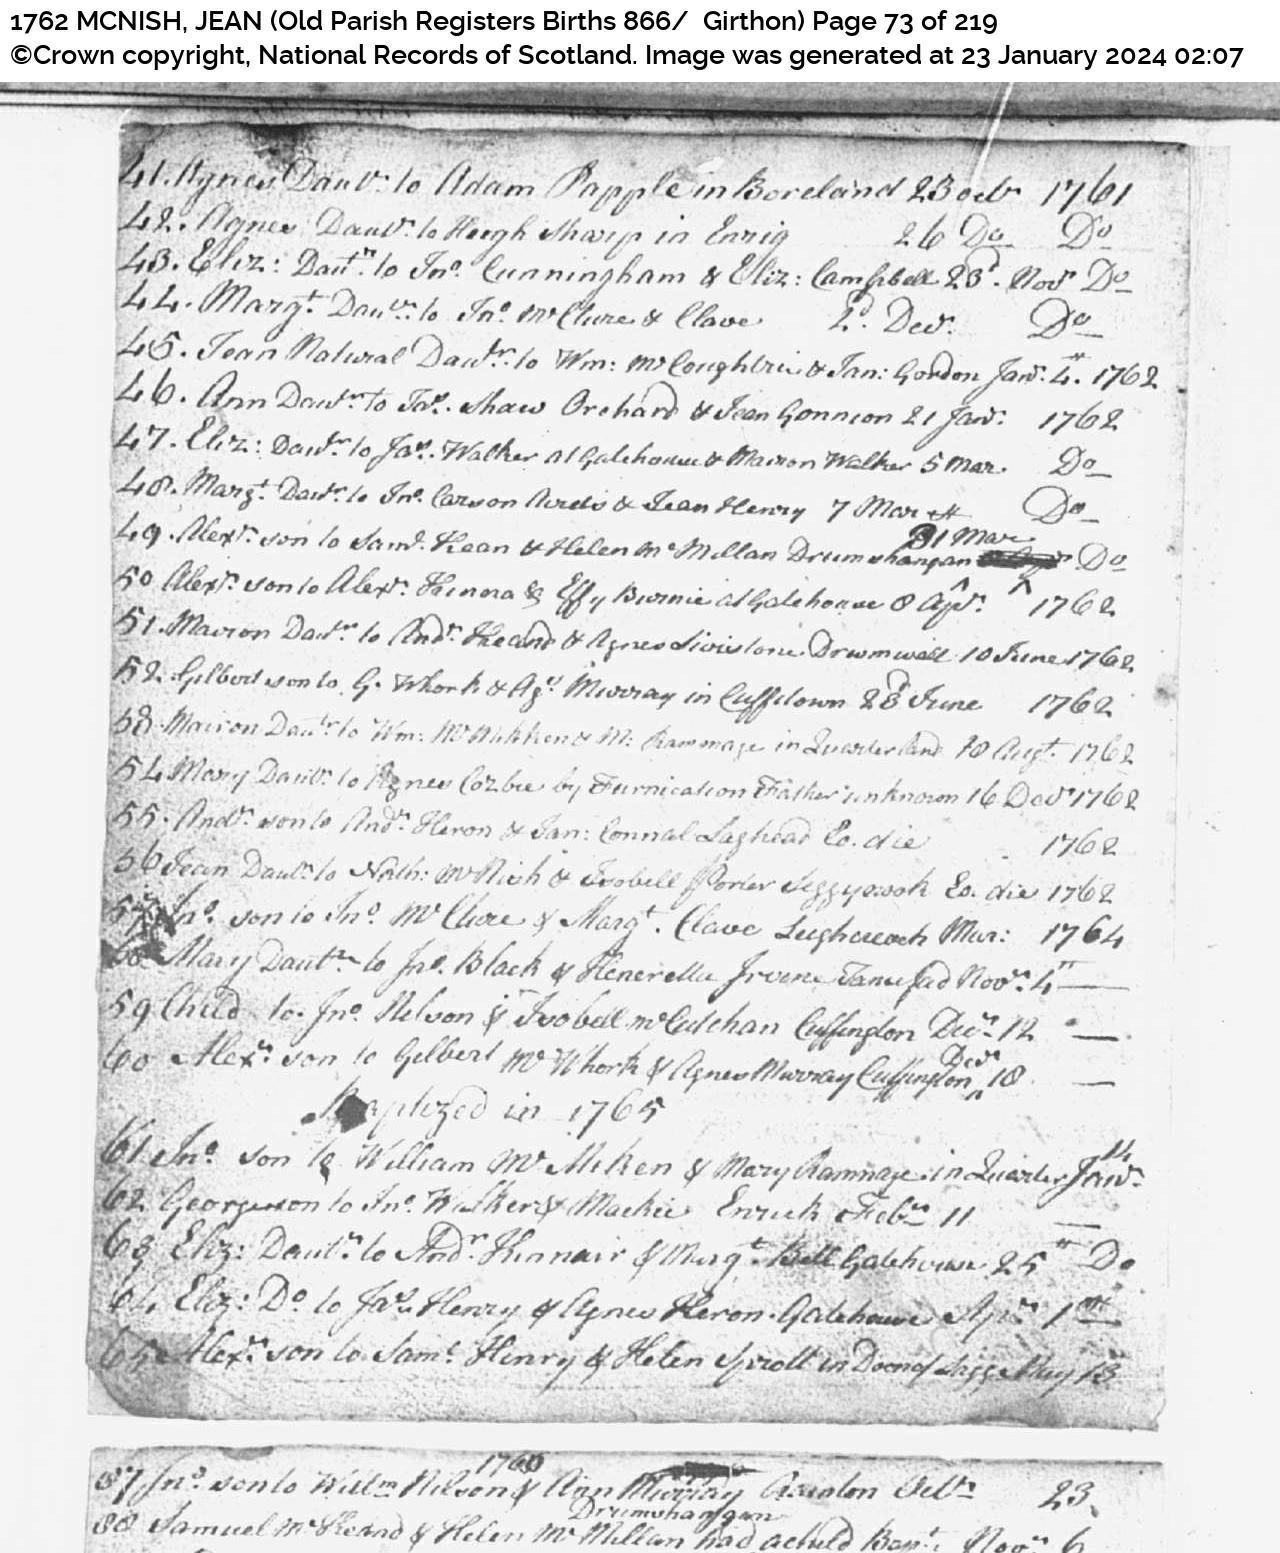 1762 MCNISH, JEAN (Old Parish Registers Births 866/ Girthon) Page 73 of 219
©Crown copyright, National Records of Scotland. Image was generated at 23 January 2024 02:07
41. Agnes Dautr. to Adam Papple in Boreland 23 octr 1761
42. Agnes Dautr. to Heugh Sharp in Enrig 26 Do Do
43. Eliz: Dautr. to Jno. Cunningham & Eliz: Campbell 23d. Novr Do
44. Margt. Dautr. to Jno. McClure & Clave 2d. Decr. Do
45. Jean Natural Dautr. to Wm: McCoughtrie & Jan: Gordon Janr. 4th. 1762
46. Ann Dautr. to Jas. Shaw Orchard & Jean Gonnion 21 Janr. 1762
47. Eliz: Dautr. to Jas. Walker at Gatehouse & Marion Walker 5 Mar. Do
48. Margt. Dautr. to Jno. Carson & Jean Henry 7 Mar Do
31 Mar
49. Alexr. son to Saml. Kean & Helen McMillan Drumshangan Do
50 Alexr. son to Alexr. & Effy Burnie at Gatehouse 8 Apr. 1762
51. Marion Dautr. to Andr. & Agnes Livistone Drumwall 10 June 1762
52. Gilbert son to G. Whork & Ags. Murray in Cuffdown 28d June 1762
53. Marion Dautr. to Wm: McMikken & M: Rammage in Quarterland 10 Augt. 1762
54 Mary Dautr. to Agnes Cozbie by Furnication Father unknown 16 Decr 1762
55. Andr. son to Andr. Heron & Jan: Connal Laghead Eo. die 1762
56 Jean Dautr. to Nath: McNish & Isobell Porter Eo. die 1762
57 Jno. son to Jno. McClure & Margt. Clave Mar: 1764
58 Mary Dautr. to Jno. Black & Henerella Irvine Novr. 4th —
59 Child to Jno. Nelson & Isobell McCutchan Cuffington Decr. 12 —
60 Alexr. son to Gilbert McWhork & Agnes Murray Cuffington Decr 18 —
Baptized in 1765
61 Jno. son to William McMiken & Mary Ramnage in Quarter Janr. 14
62 George son to Jno. Walker & Mackie Enrick Febr. 11 —
63 Eliz: Dautr. to Andr. Kinnair & Margt. Bell Gatehouse 25th Do
64. Eliz: Do to Jas. Henry & Agnes Heron Gatehouse Apr. 1st
65 Alexr. son to Saml. Henry & Helen Sproll in Doon of May 13
1766
87 Jno. son to Willm Nilson & Ann Murray Octr. 23
Drumshangan
88 Samuel McKeand & Helen McMillan had a child Bapt. Novr. 6